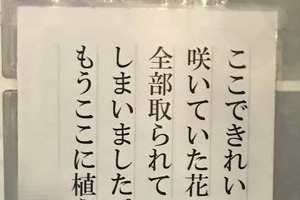 ここできれい
咲いていた花
全部取られて
しまいました。
もうここに植